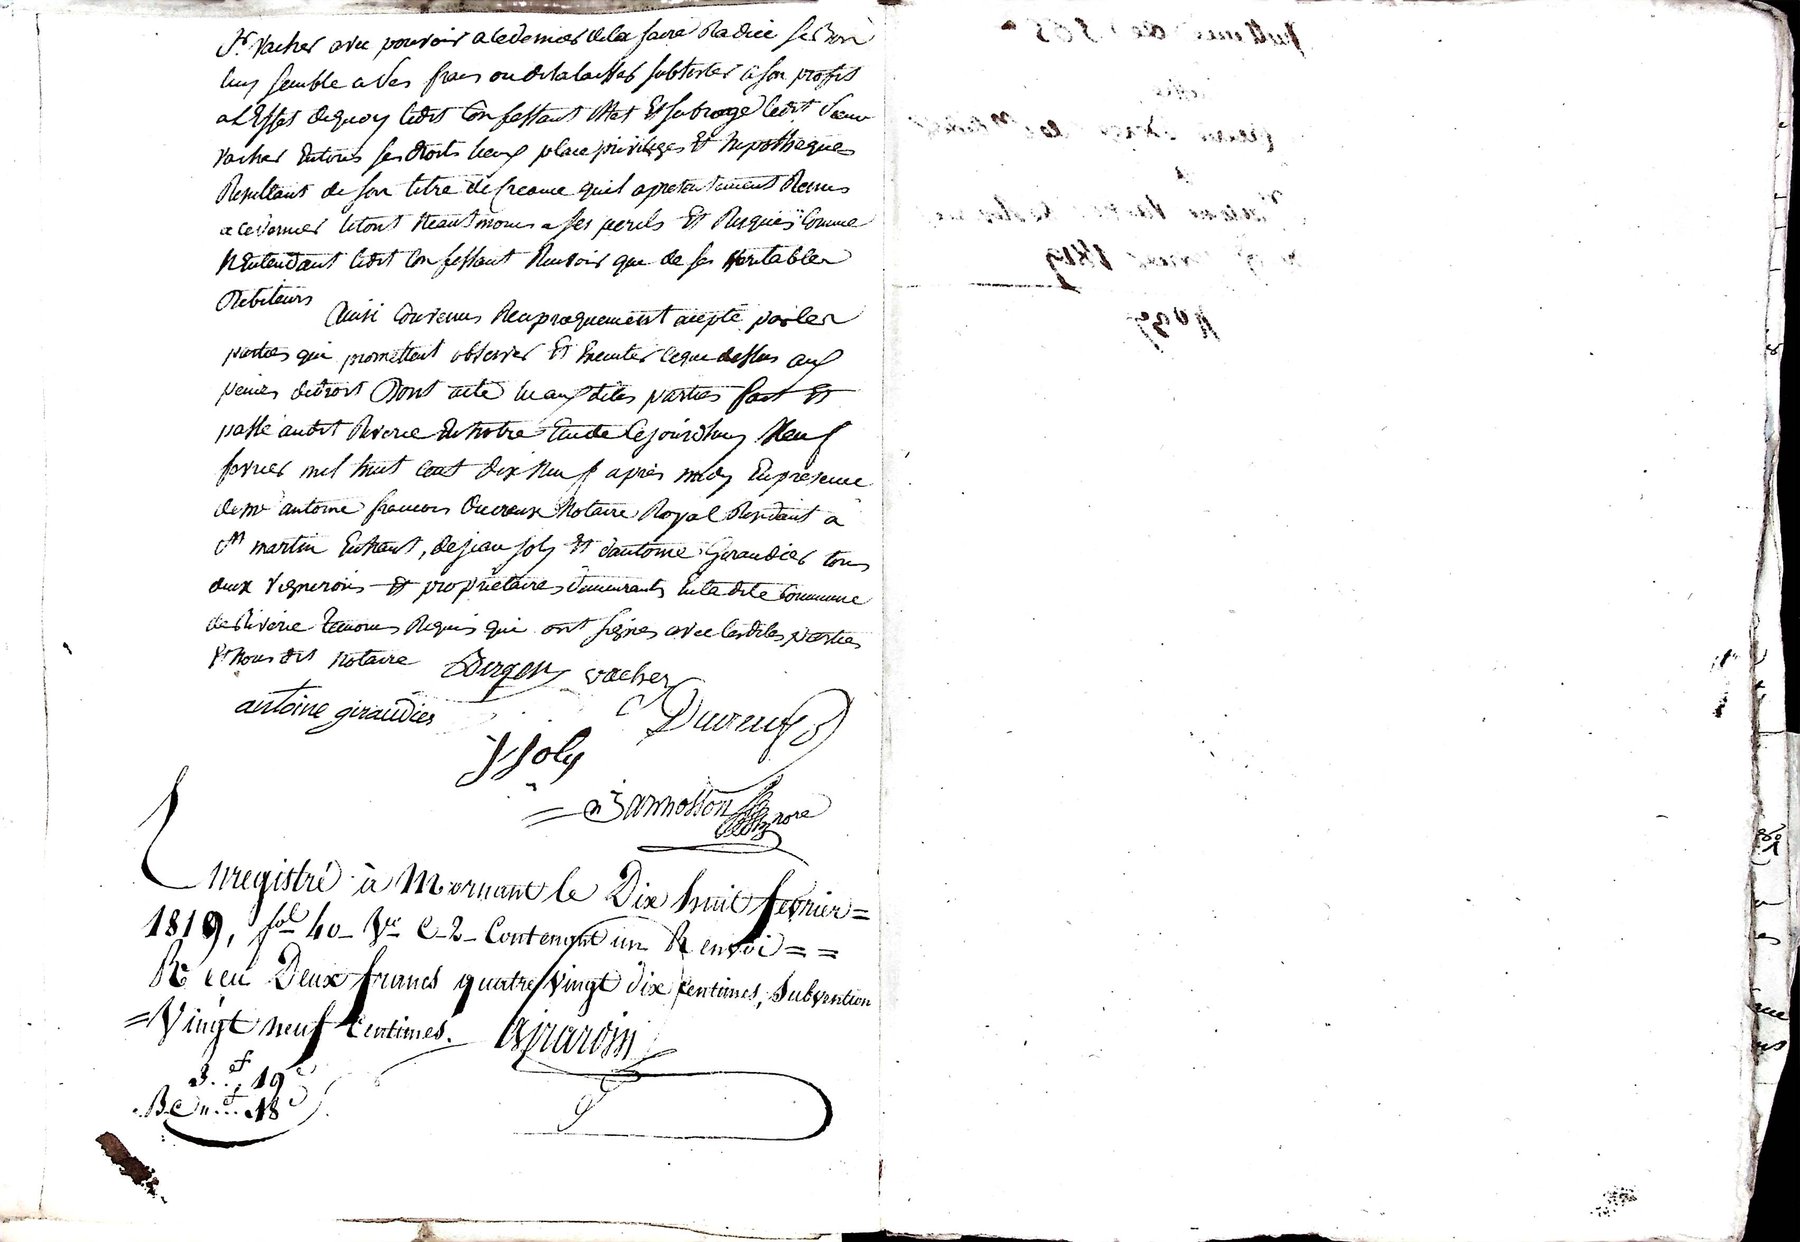 Sr vacher avec pouvoir a ce dernier de la faire Radiée si bon
luy semble a ses frais ou de la laisser subsister a son profit
a L'Effet de quoy ledit Confessant Met Et subroge ledit Sieur
vacher En tous ses droits lieux place privileges Et hypotheques
Resultant de son titre de Creance quil a presentement Remis
a ce dernier letout Neantmoins a ses perils Et Risques Comme
N'entendant ledit Confessant Recevoir que de ses veritables
Debiteurs
Ainsi Convenus Reciproquement accepté par les
parties qui promettent observer Et Executer ceque dessus aux
peines de droit Dont acte lu aux dites parties fait Et
passé audit Riverie En notre Etude Cejourdhuy Neuf
fevrier mil huit Cent dix Neuf après midy En presence
de Me antoine francois Duvreux Notaire Royal Residant a
St martin Enhaut, de jean joly Et d'antoine Giraudier tous
deux vignerons Et proprietaires demeurants En la dite Commune
de Riverie temoins Requis qui ont signes avec lesdites parties
Et Nous dit Notaire vacher
antoine giraudier
J Joly
nore
Enregistré à Mornant le Dix huit fevrier =
1819, fol 40 Vo C. 2 - Contenant un Renvoi = =
Recu Deux francs quatre vingt dix centimes, Subvention
= Vingt neuf Centimes. Girardin
3.f 19c
18c
No 39